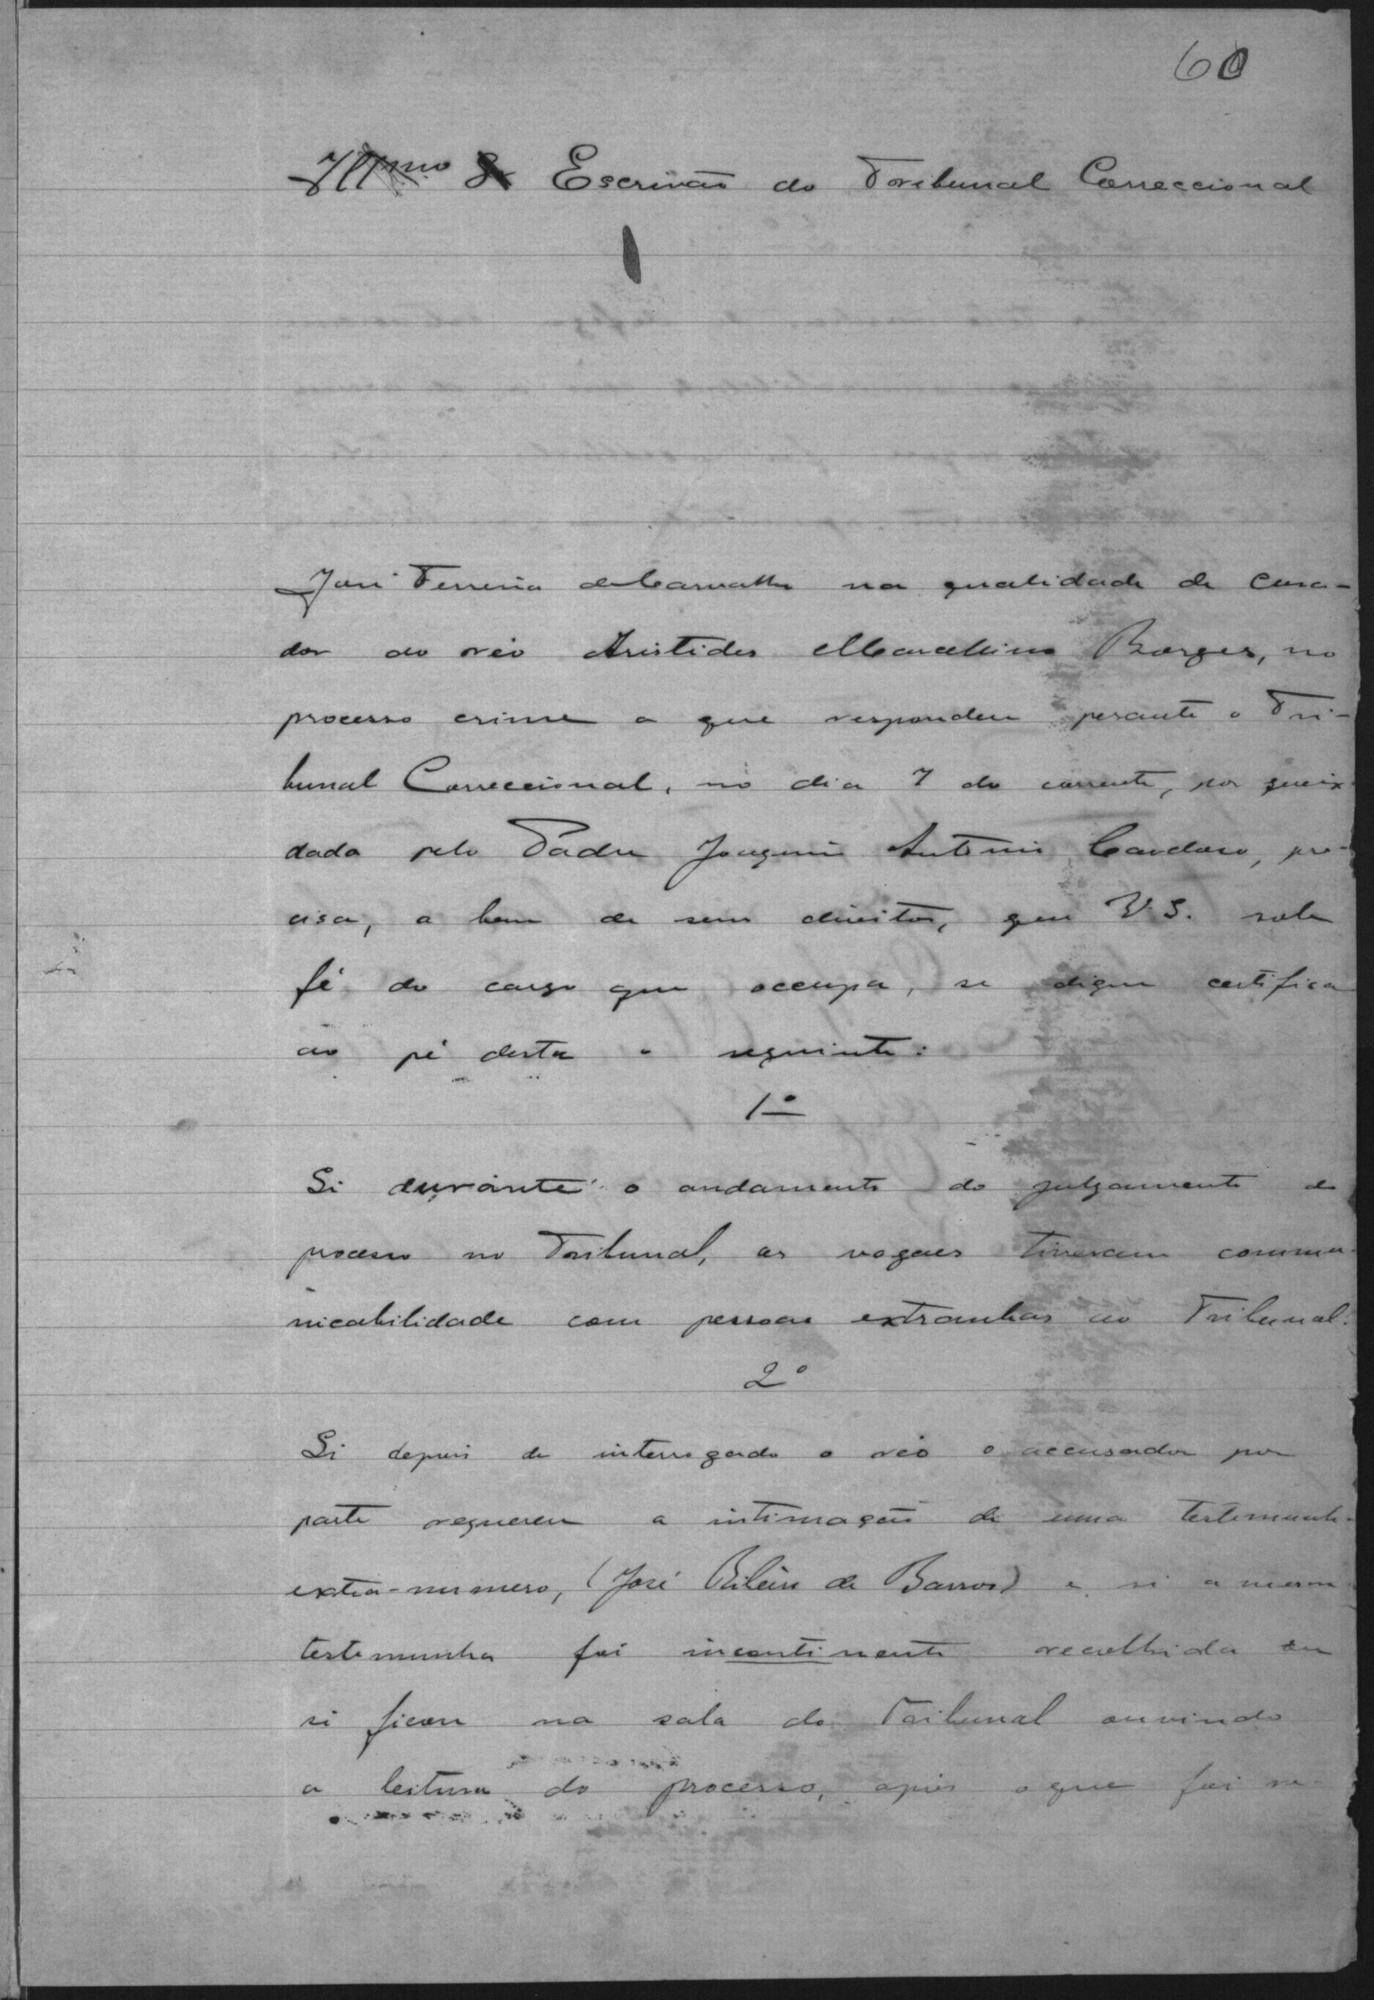 60
Illmo Sr Escrivão do Tribunal Correccional
José Ferreira de Carvalho na qualidade de cura-
dor do réo Aristides Marcellino Borges, no
processo crime a que respondeu perante o Tri-
bunal Correccional, no dia 7 do corrente, por queix
dada pelo Padre Joaquim Antonio Cardoso, pre-
cisa, a bem de seus direitos, que V.S. sob
fé do cargo que occupa, se digne certifica
ao pé desta o seguinte:
1º
Si durante o andamento do julgamento do
processo no Tribunal, os vogaes tiveram commu-
nicabilidade com pessoas extranhas ao Tribunal.
2º
Si depois de interrogado o réo o accusador por
parte requereu a intimação de uma testemunh-
extra-numero, (José Ribeiro de Barros) e si a mesm
testemunha foi incontinente recolhida ou
si ficou na sala do Tribunal ouvindo
a leitura do processo, após o que foi re-